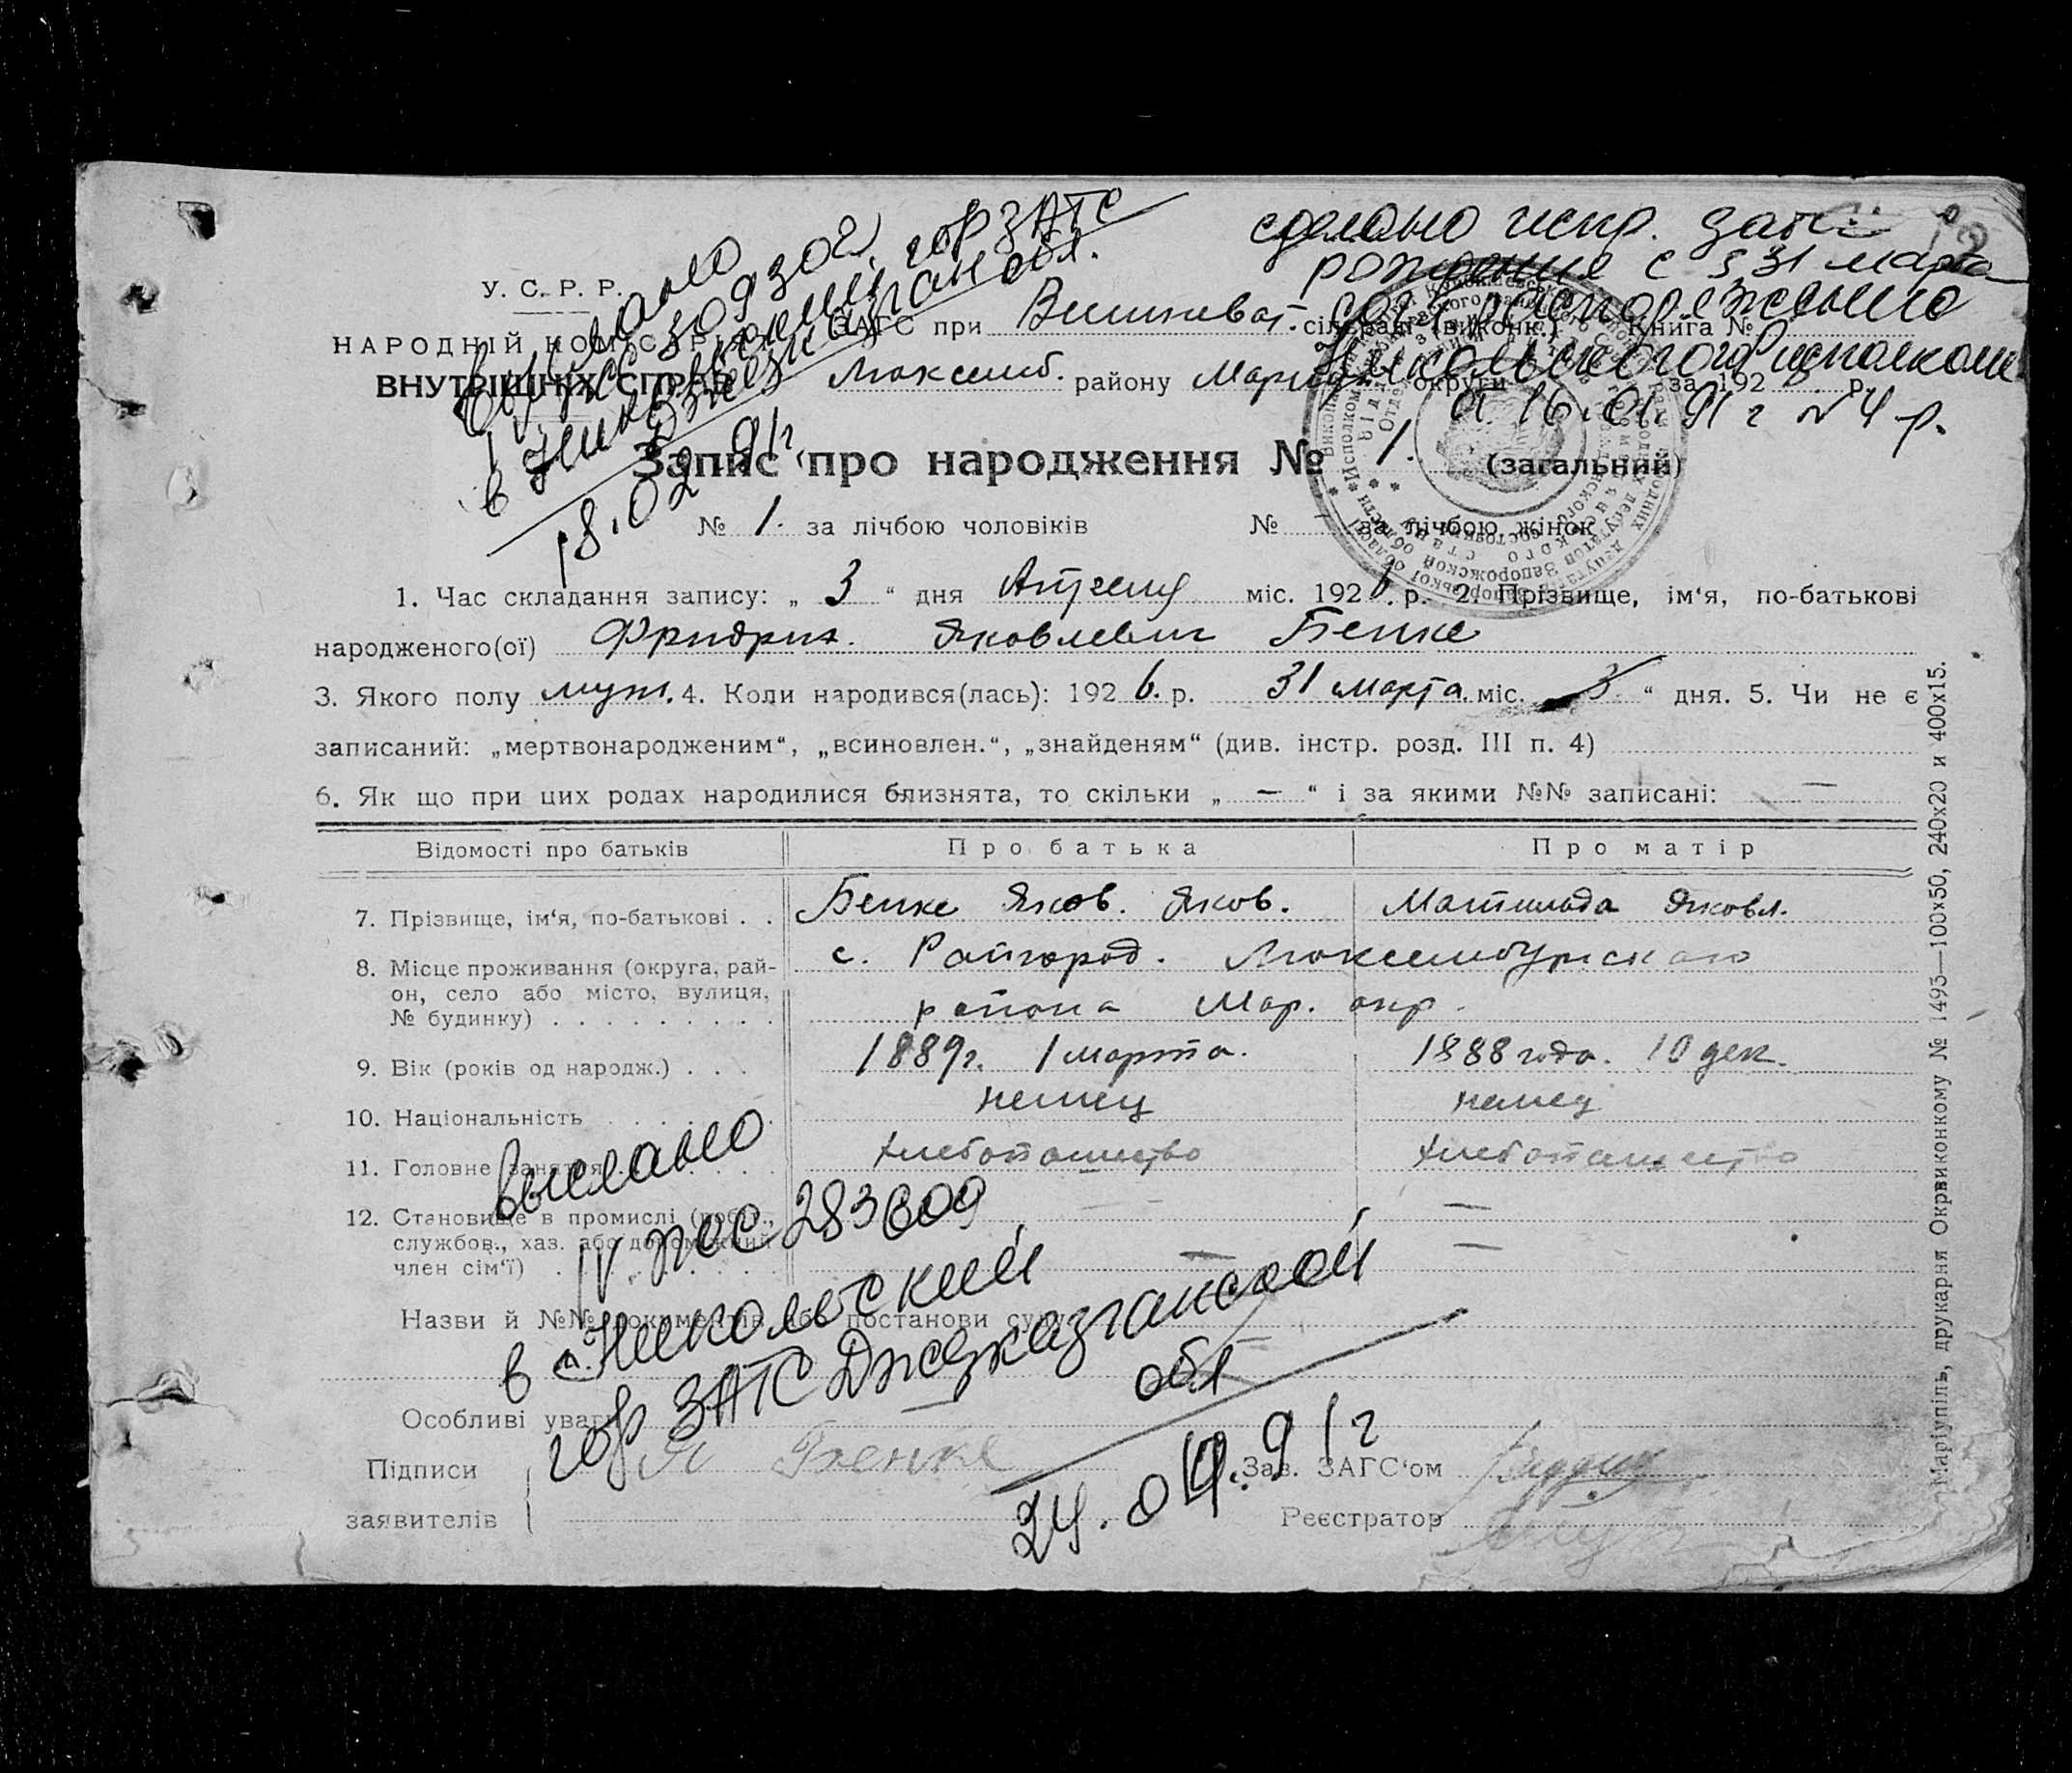 сделано испр. дати
рождения с 3 31 марта
согл распоряжению
Никольского Рисполкома
16.01.91 г N 4 р.
выслано
309302
гор ЗАГС
в Никольский
Джезказган обл.
18.02.91г.
У. С. Р. Р.
НАРОДНІЙ КОМІСАРІЯТ
ВНУТРІШНІХ СПРАВ
ЗАГС при Вишневат. сільраді (виконк.) Книга №
Люксемб. району Мариуп. округи за 192 р.
Запис про народження № 1. (загальний)
№ 1. за лічбою чоловіків № за лічбою жінок
1. Час складання запису: „ 3 “ дня Апреля міс. 192 6. р. 2. Прізвище, ім‘я, по-батькові
народженого(ої) Фридрих. Яковлевич Бенке
3. Якого полу муж. 4. Коли народився(лась): 192 6. р. 31 марта. міс. 3 “ дня. 5. Чи не є
записаний: „мертвонародженим“, „всиновлен.“, „знайденям“ (див. інстр. розд. III п. 4)
6. Як що при цих родах народилися близнята, то скільки „ — “ і за якими №№ записані: —
Відомості про батьків Про батька Про матір
7. Прізвище, ім‘я, по-батькові . . Бенке Яков. Яков. Матильда Яковл.
8. Місце проживання (округа, рай-
он, село або місто, вулиця,
№ будинку) . . . . . . . . .
с. Райгород. Люксембургского
района Мар. окр.
9. Вік (років од народж.) . . . 1889г. 1 марта. 1888 года. 10 дек.
10. Національність немец немец
11. Головне заняття хлебопашество хлебопашество
12. Становище в промислі (робіт.,
службов., хаз. або допоміжний
член сім‘ї) — —
выслано
IV рес 283609
в г. Никольский
гор ЗАГС Джезказганской
обл
24.04.91г
Назви й №№ документів або постанови суду
Особливі уваги
Підписи
заявителів
Я Бенке
Зав. ЗАГС‘ом
Реєстратор
Маріупіль, друкарня Окрвиконкому № 1495—100х50, 240х20 и 400х15.